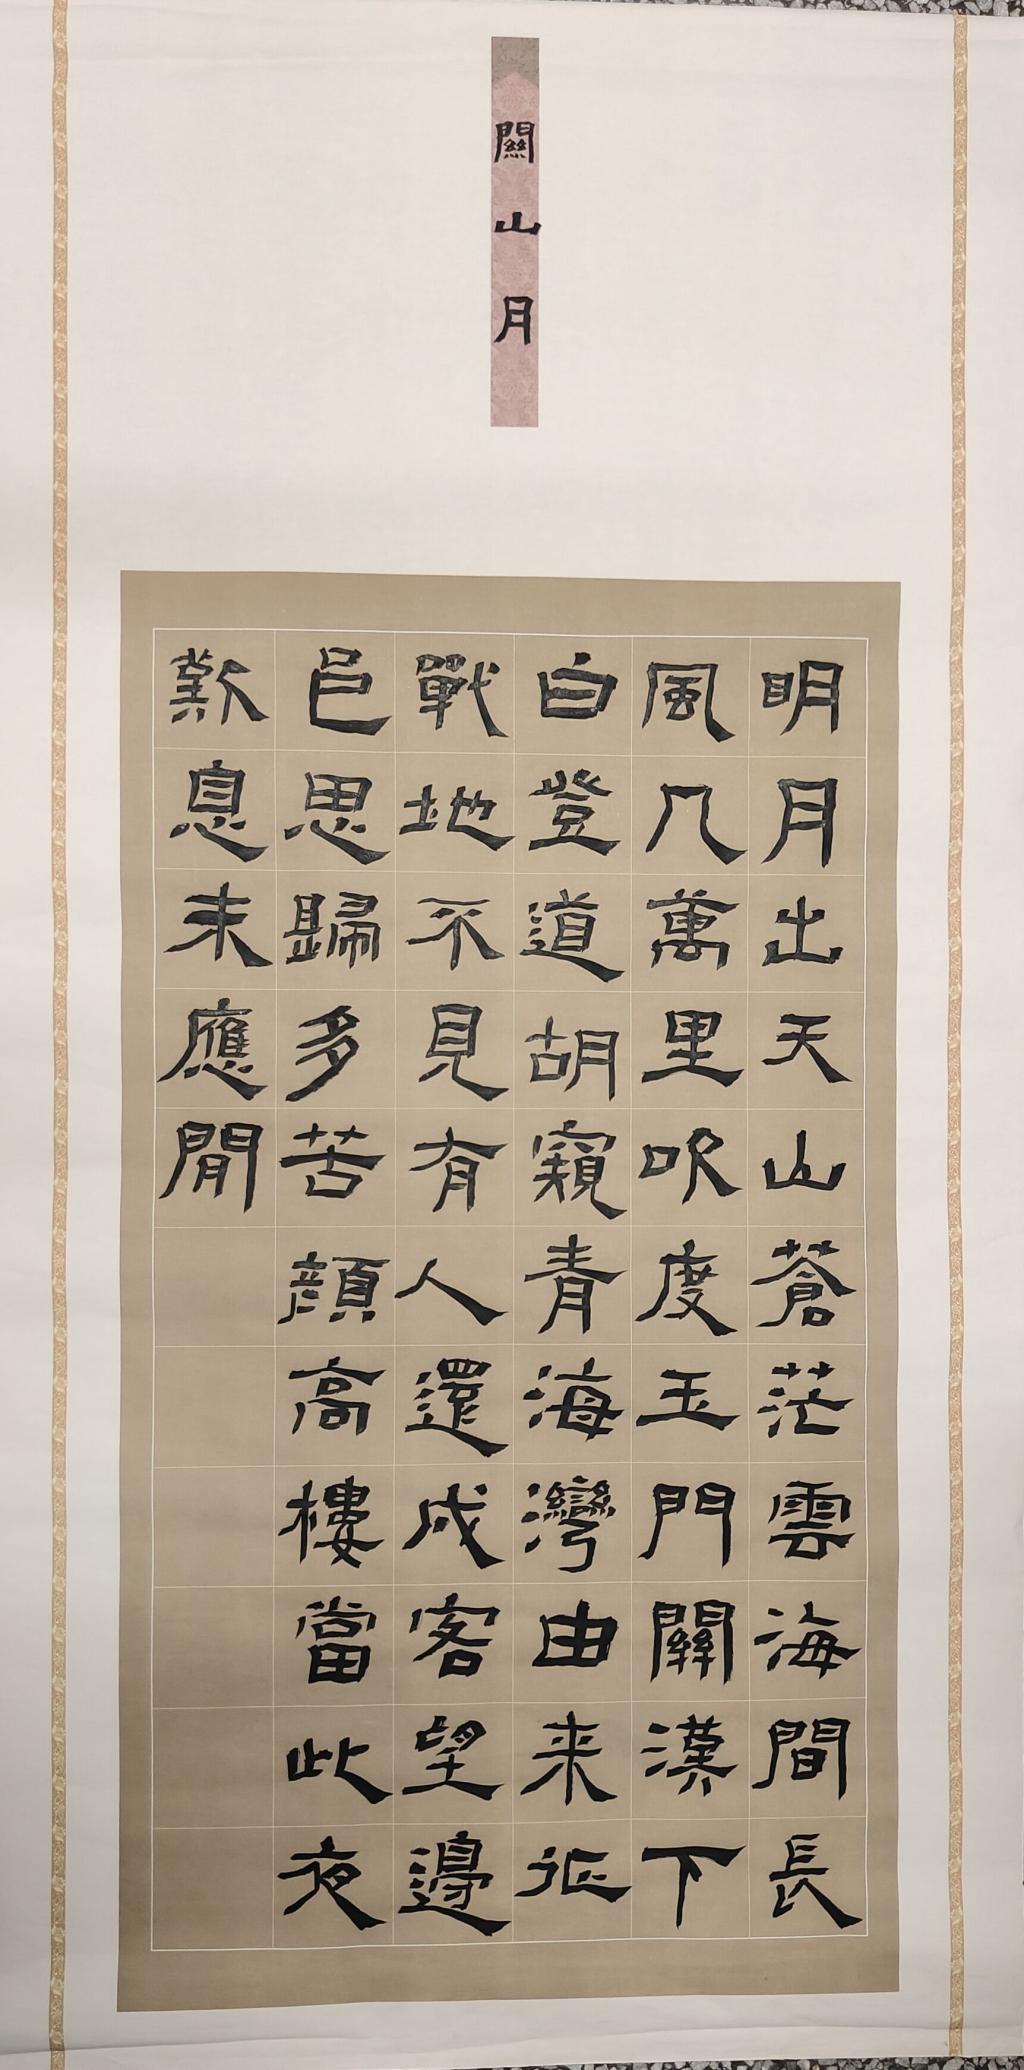 關山月
明月出天山蒼茫雲海間長
風几萬里吹度玉門關漢下
白登道胡窺青海灣由来征
戰地不見有人還戍客望邊
邑思歸多苦顔高樓當此夜
歎息未應閒